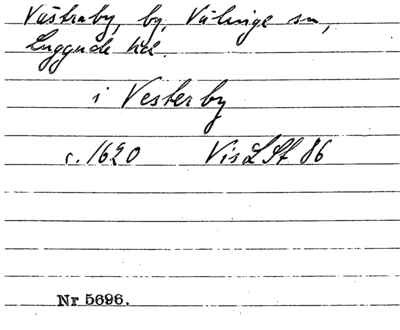 Västraby, by, Välinge sn,
Luggude hd.
i Vesterby
c. 1620 VisLSt 86
Nr 5696.